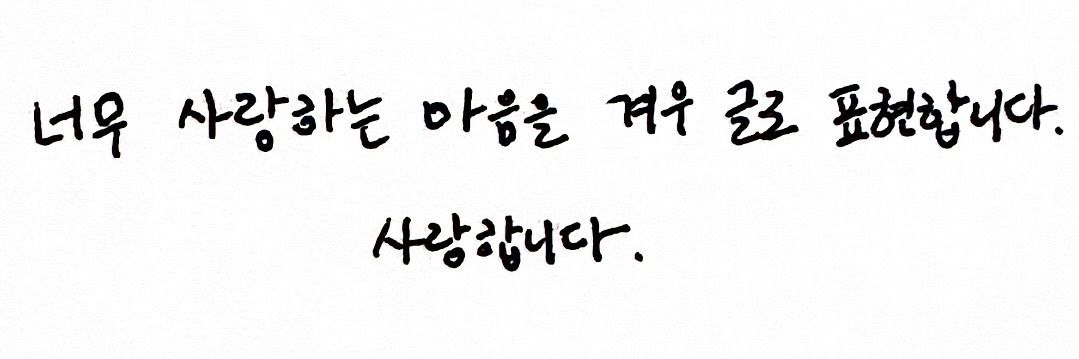 너무 사랑하는 마음을 겨우 글로 표현합니다.
사랑합니다.